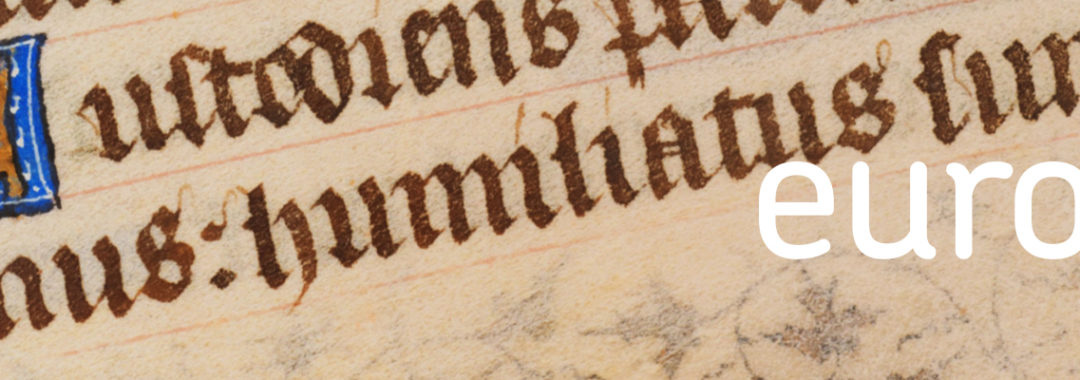 uſtodiens
nus: humiliatus
euro